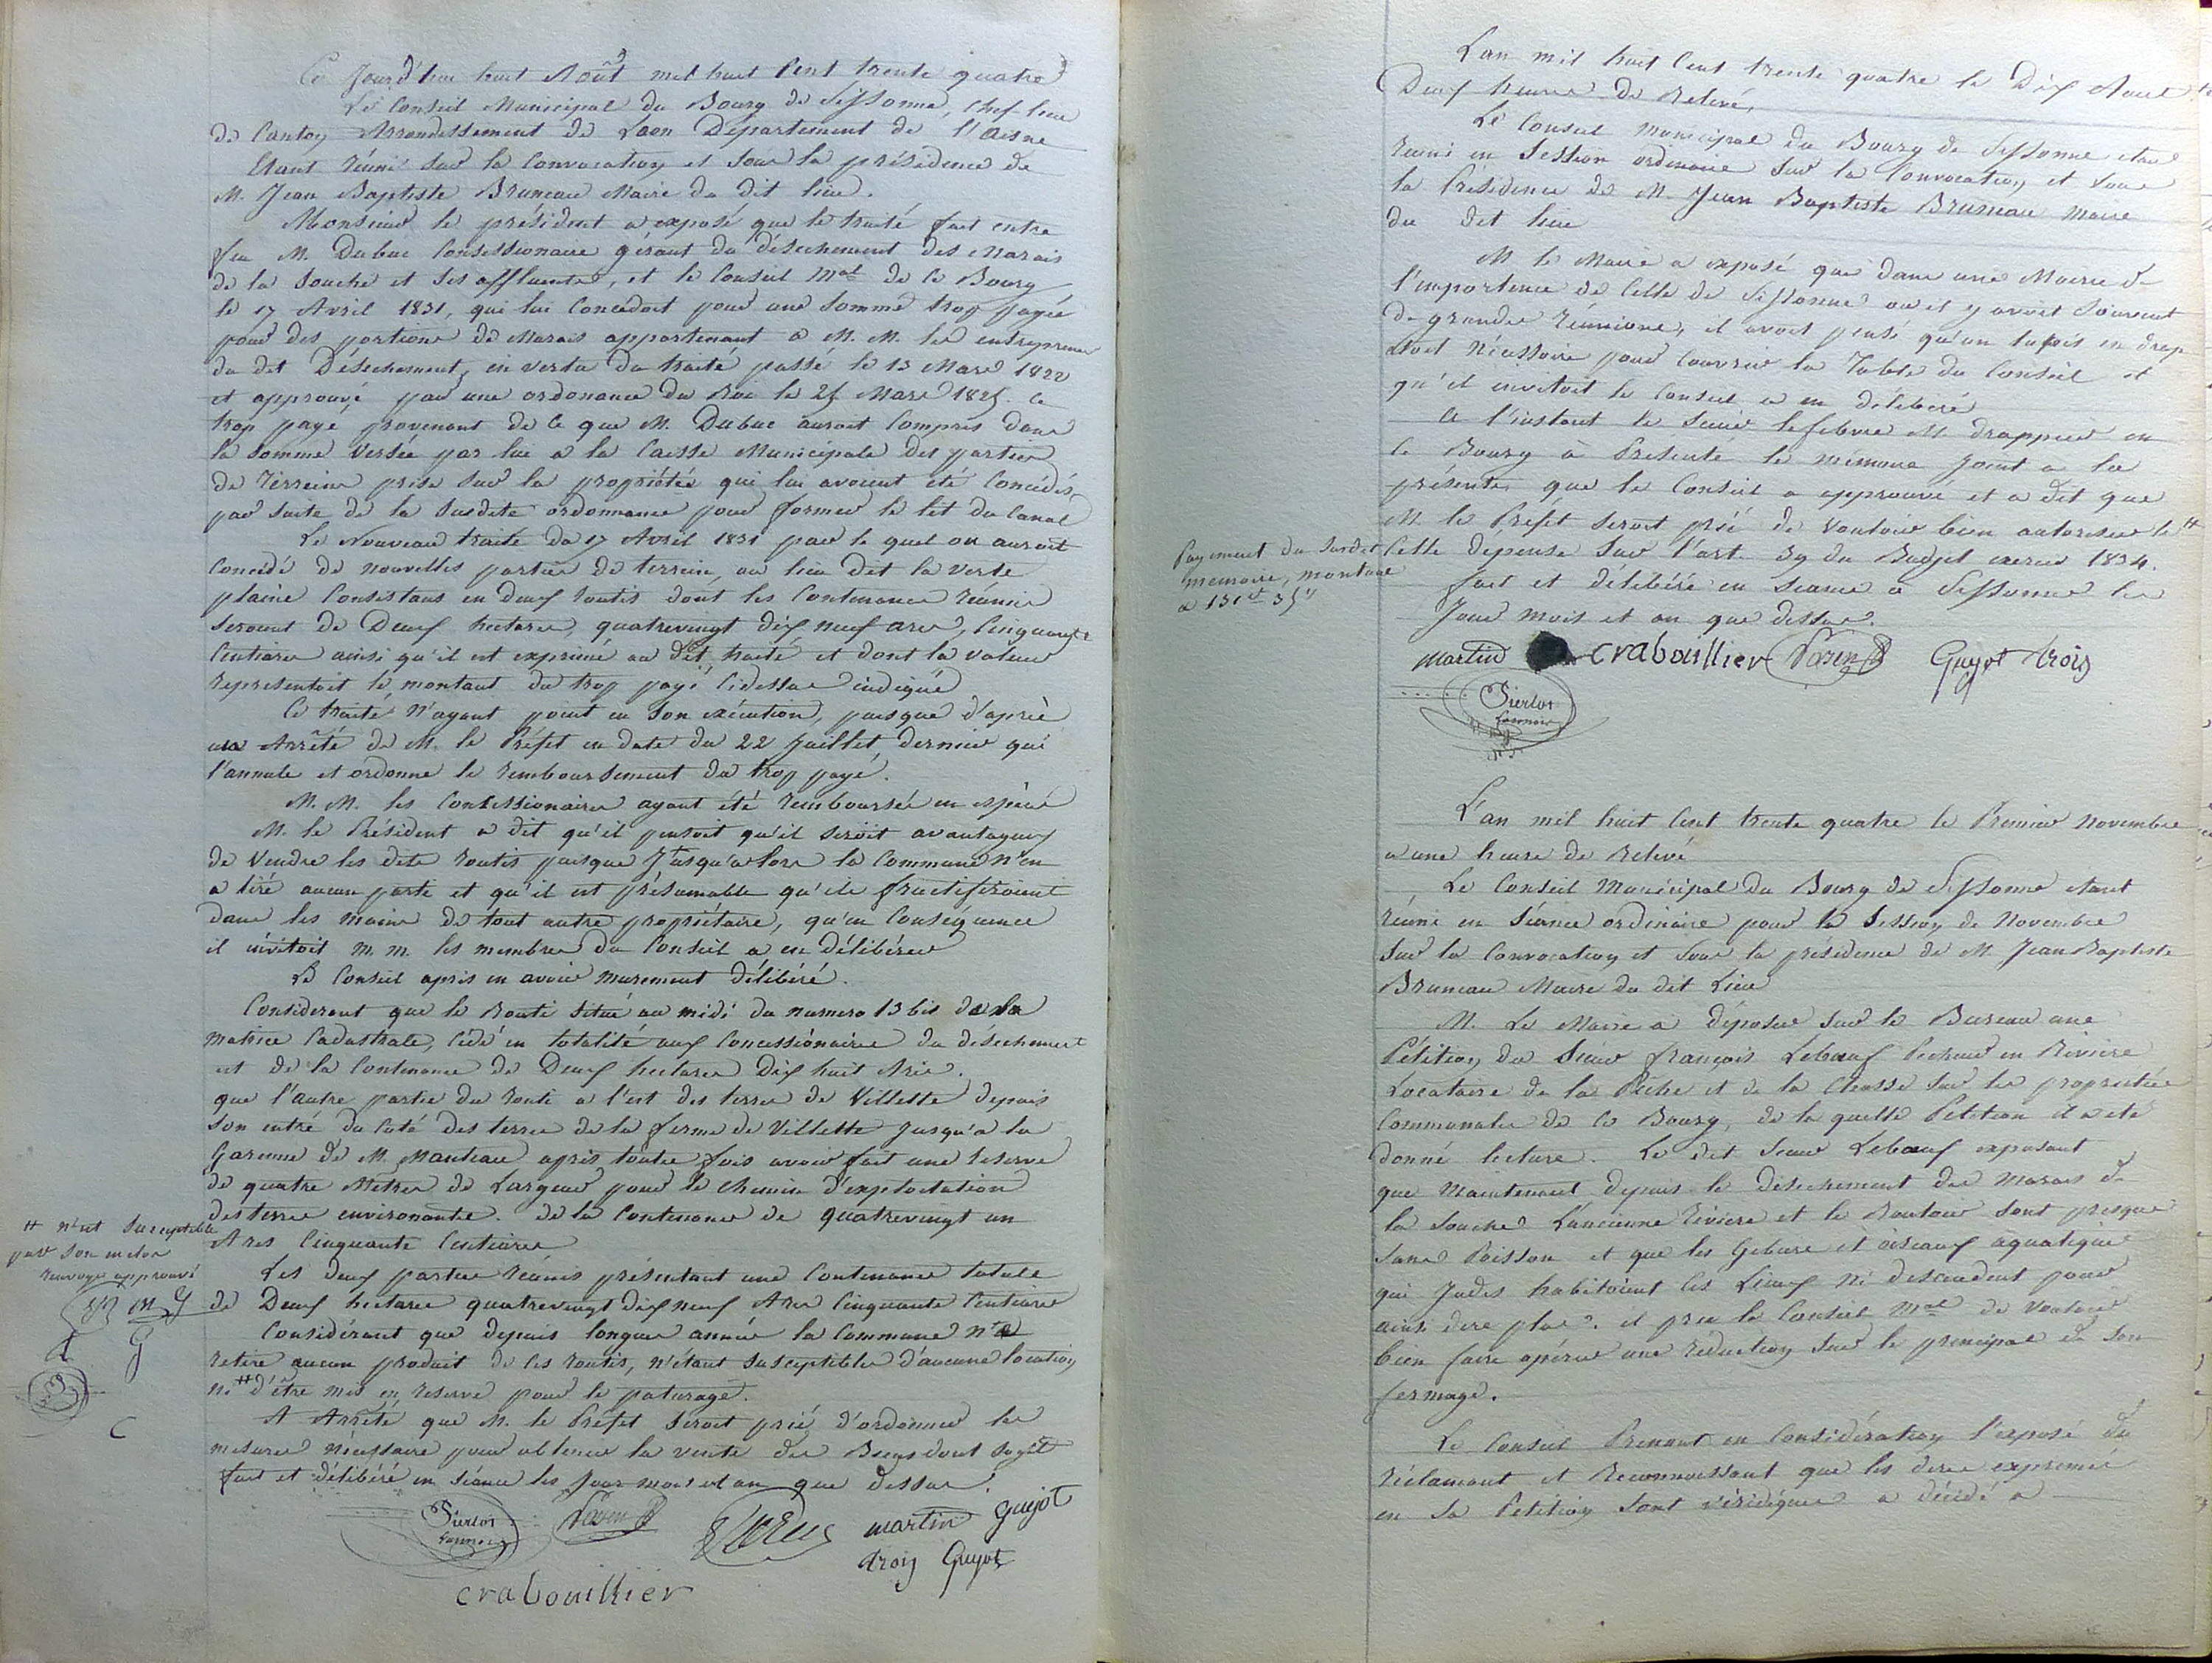 Ce Jourd'hui huit Août mil huit Cent trente quatre
Le Conseil Municipal du Bourg de Sissonne, Chef-lieu
de Canton Arrondissement de Laon Département de l'Aisne
Etant réuni sur la Convocation et sous la présidence de
M. Jean Baptiste Bruneau Maire du dit lieu.
Monsieur le président a exposé que le traité fait entre
feu M. Dubuc Consessionaire gérant du désechement des Marais
de la Souche et ses affluents, et le Conseil Mal de ce Bourg
le 17 Avril 1831, qui lui Concedoit pour une somme trop payée
pour des portions de Marais appartenant a M. M. les entrepreneurs
du dit Désechement, en vertu du traité passé le 13 Mars 1822
et approuvé par une ordonance du Roi le 25 Mars 1825. Ce
trop payé, provenant de ce que M. Dubuc auroit Compris dans
la somme Versée par lui a la Caisse Municipale des parties
de terrein prise sur la propriétée qui lui avoient été Concédés,
par suite de la susdite ordonnance pour former le lit du Canal
Le Nouveau traité du 17 Avril 1831 par le quel on auroit
Concédé de nouvelles parties de terrein, au lieu dit la Verte
plaine Consistans en Deux routis dont les Contenances réunies
seroient de Deux hectares, quatrevingt dix neuf ares, Cinquante
Centiares ainsi qu'il est exprimé au dit traité et dont la valeur
representoit le montant du trop payé Cidessus indiqué
Ce traité n'ayant point eu son exécution, puisque d'après
un Arrêté de M. le Préfet en date du 22 Juillet dernier qui
l'annule et ordonne le remboursement du trop payé.
M. M. les Consessionaires ayant été remboursée en espèces
M. le Président a dit qu'il pensoit qu'il seroit avantageux
de Vendre les dits routis puisque Jusqu'alors la Commune n'en
a tiré aucun parti et qu'il est présumable qu'ils fructifiroient
dans les mains de tout autre propriétaire, qu'en Conséquence
il invitoit m. m. les membres du Conseil a en Délibérer
Le Conseil après en avoir murement délibéré.
Considerant que le Routi situé au midi du numero 13 bis de la
matrice Cadastrale, Cédé en totalité aux Concessionaires du désechement
est de la Contenance de Deux hectares Dix huit Ares.
que l'autre partie du routi a l'est des terres de Villette depuis
son entré du Coté des terres de la ferme de Villette Jusqu'a la
Garenne de M. Manteau après toutes fois avoir fait une reserve
de quatre Metres de Largeur pour le Chemin d'exploitation
des terres environantes. de la Contenance de quatrevingt un
Ares Cinquante Centiares
Les deux parties réunis présentant une Contenance totale
de Deux hectares quatrevingt dix neuf Ares Cinquante Centiares
Considérant que depuis longues années la Commune n'a
retiré aucun produit de ces routis, n'étant susceptibles d'aucune location
ni # d'être mis en reserve pour le paturage.
A Arrêté que M. le Préfet seroit prié d'ordonner les
mesures nécessaires pour obtenir la vente des Biens dont sagit
fait et délibéré en séance les Jour mois et an que dessus.
Pierlot Lannois Guyot
martin
trois Guyot
crabouillier
# n'est susceptible
par son melon
renvoye approuvé
G
C
L'an mil huit Cent trente quatre le Dix Aout
Deux heures de relevé,
Le Conseil Municipal du Bourg de Sissonne etant
reuni en Session ordinaire sur la Convocation et sous
la Présidence de M. Jean Baptiste Bruneau maire
du dit lieu
M. le Maire a exposé que dans une Mairie de
l'importence de Celle de Sissonne ou il y avoit Souvent
de grandes réunions, il avoit pensé qu'un tapis en drap
etoit Nécessaire pour Couvrir la Table du Conseil et
qu'il invitoit le Conseil a en délibéré
A l'instant le Sieur lefebvre Md drappier en
ce Bourg à Présenté le mémoire joint a la
présente que le Conseil a approuvé et a dit que
M. le Préfet seroit prié de vouloir bien autoriser le #
Payement du susdit
memoire, montant
a 131f 35c
Cette dépense sur l'art. 39 du Budjet exercice 1834.
fait et délibéré en séance a Sissonne les
Jour mois et an que dessus.
martin crabouillier Guyot trois
Pierlot
Lannois
L'an mil huit Cent trente quatre le Premier novembre
a une heure de relevé
Le Conseil Municipal du Bourg de Sissonne etant
réuni en séance ordinaire pour la Session de Novembre
sur la Convocation et sous la présidence de M. Jean Baptiste
Bruneau Maire du dit Lieu
M. Le Maire a déposer sur le Bureau une
Pétition du Sieur françois Lebœuf Pecheur en Riviere
Locataire de la Pèche et de la Chasse sur les proprietées
Communales de ce Bourg, de la quelle Petition il a été
donné lecture. Le dit Sieur Lebœuf exposant
que maintenant depuis le désechement des marais de
la Souche L'ancienne rivière et le Routoir sont presque
sans Poisson et que les Gibiers et oiseaux aquatique
qui Jadis habitoient ces Lieux ni descendent pour
ainsi dire plus. il prie le Conseil Mal de vouloir
bien faire opérer une réduction sur le principal de son
fermage.
Le Conseil Prenant en Considération l'exposé du
réclamant et Reconnoissant que les dires exprimés
en sa Pétition sont véridiques a décidé a